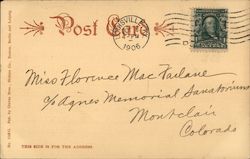 Post Card
1906
Miss Florence MacFarlane
c/o Agnes Memorial Sanatorium
Montclair
Colorado
THIS SIDE IS FOR THE ADDRESS